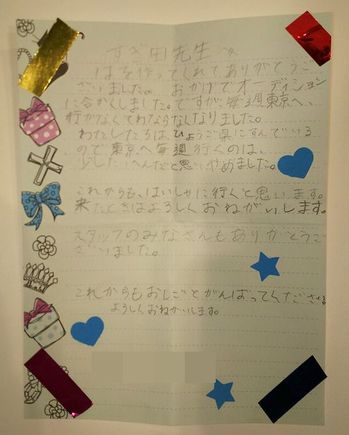 すぎ田先生へ
はを作ってくれてありがとうご
ざいました。おかげでオーディション
に合かくしました。ですが、毎週東京へ、
行かなくてわならなくなりました。
わたしたちは ひょうご県にすんでいる
ので東京へ毎週行くのは、
少したいへんだと思いやめました。
これからも、はいしゃに行くと思います。
来たときはよろしくおねがいします。
スタッフのみなさんもありがとうご
ざいました。
これからもおしごとがんばってくださいね
よろしくおねがいします。